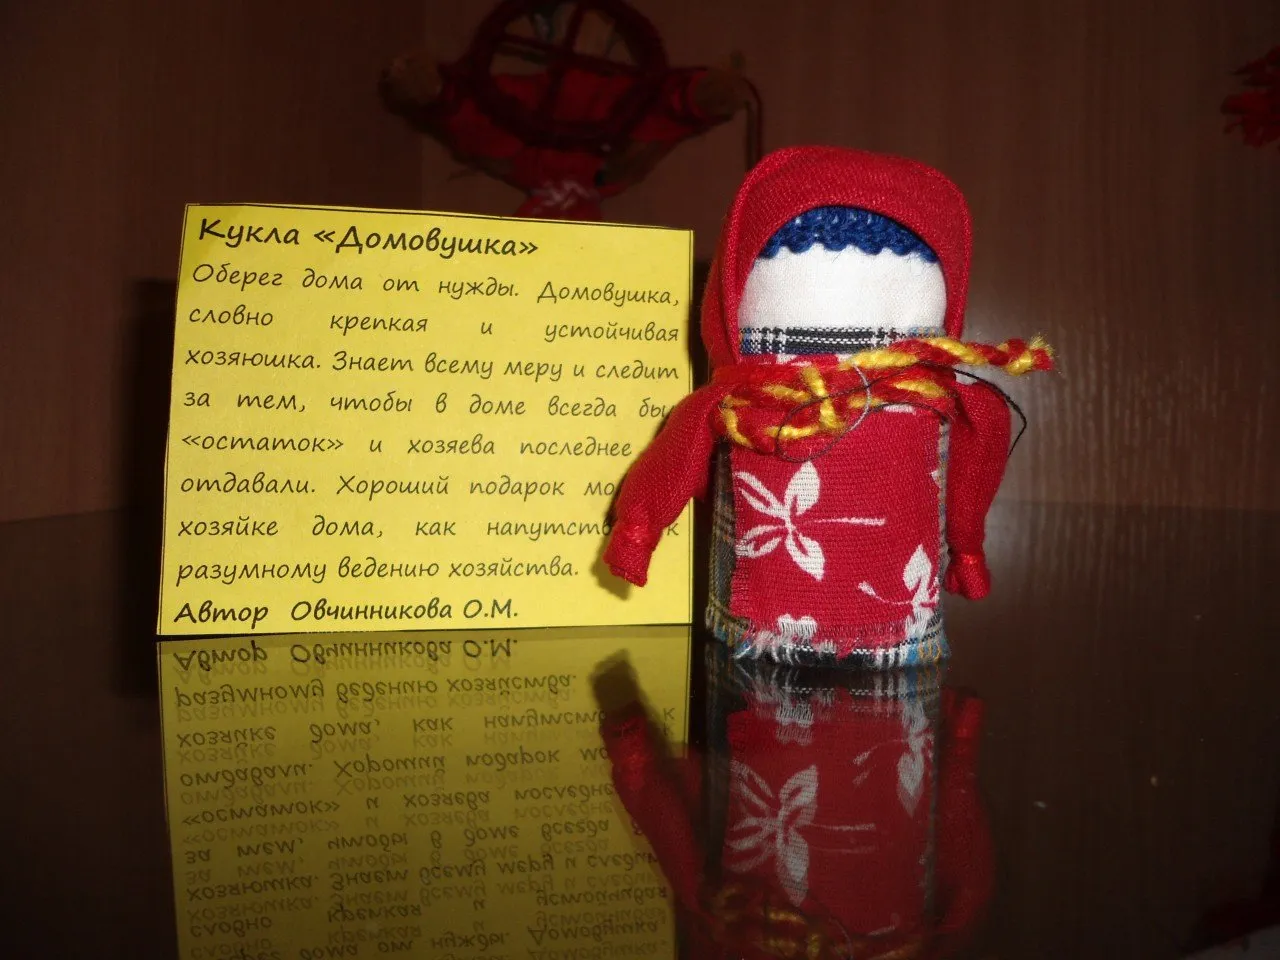 Кукла «Домовушка»
Оберег дома от нужды. Домовушка,
словно крепкая и устойчивая
хозяюшка. Знает всему меру и следит
за тем, чтобы в доме всегда бы
«остаток» и хозяева последнее
отдавали. Хороший подарок мо
хозяйке дома, как напутств к
разумному ведению хозяйства.
Автор Овчинникова О.М.